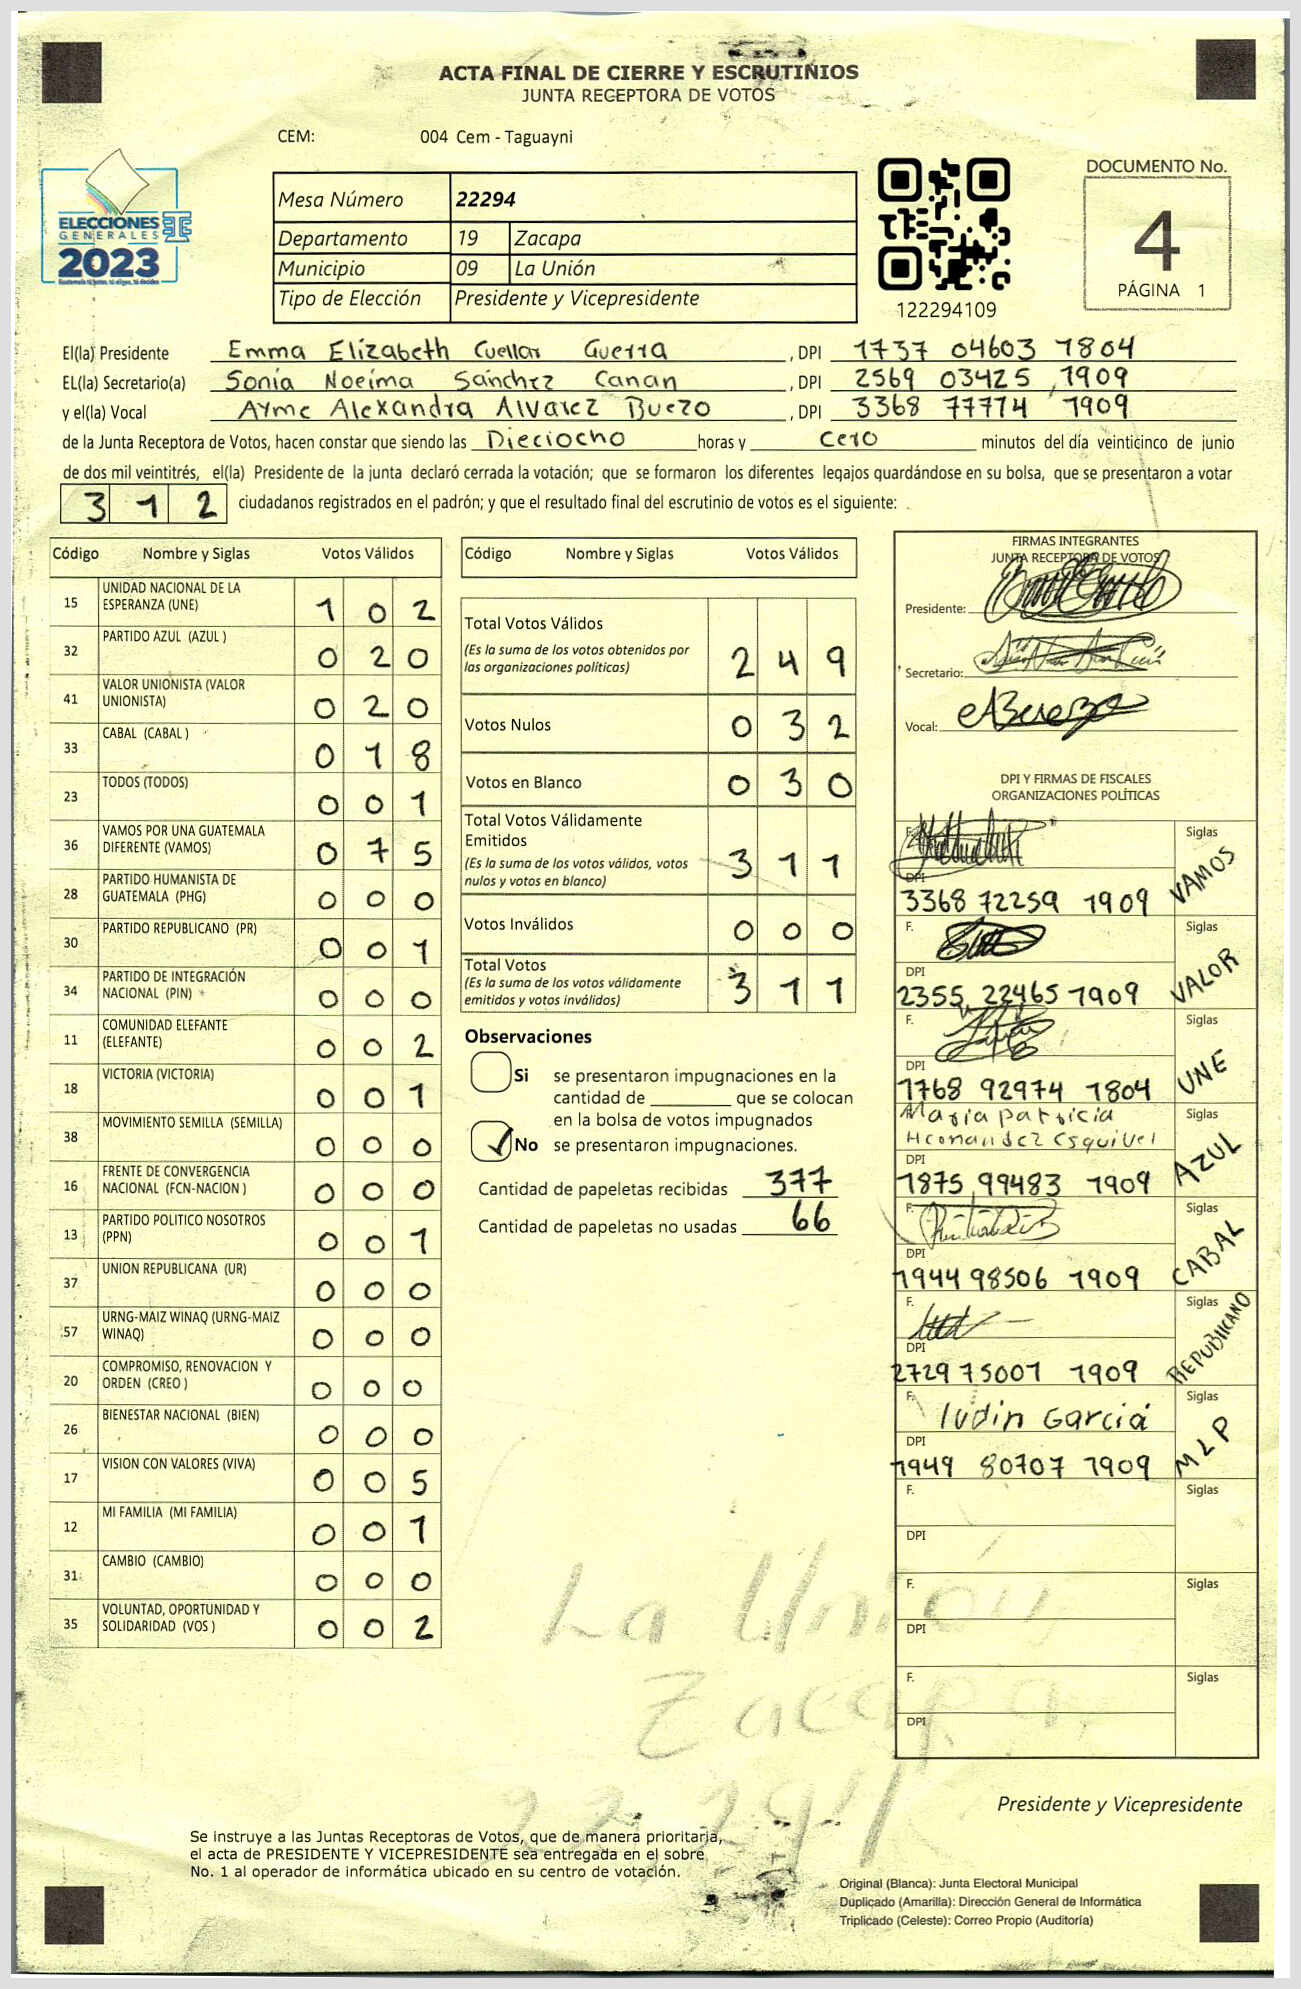 ACTA FINAL DE CIERRE Y ESCRUTINIOS
JUNTA RECEPTORA DE VOTOS
CEM: 004 Cem - Taguayni
ELECCIONES
GENERALES
2023
Mesa Número 22294
Departamento 19 Zacapa
Municipio 09 La Unión
Tipo de Elección Presidente y Vicepresidente
122294109
DOCUMENTO No.
4
PÁGINA 1
El(la) Presidente Emma Elizabeth Cuellar Guerra , DPI 1737 04603 1804
EL(la) Secretario(a) Sonia Noeima Sánchez Canan , DPI 2569 03425 1909
y el(la) Vocal Ayme Alexandra Alvarez Buezo , DPI 3368 77774 1909
de la Junta Receptora de Votos, hacen constar que siendo las Dieciocho horas y Cero minutos del día veinticinco de junio
de dos mil veintitrés, el(la) Presidente de la junta declaró cerrada la votación; que se formaron los diferentes legajos quardándose en su bolsa, que se presentaron a votar
312 ciudadanos registrados en el padrón; y que el resultado final del escrutinio de votos es el siguiente:
Código Nombre y Siglas Votos Válidos
15 UNIDAD NACIONAL DE LA ESPERANZA (UNE) 1 0 2
32 PARTIDO AZUL (AZUL ) 0 2 0
41 VALOR UNIONISTA (VALOR UNIONISTA) 0 2 0
33 CABAL (CABAL ) 0 1 8
23 TODOS (TODOS) 0 0 1
36 VAMOS POR UNA GUATEMALA DIFERENTE (VAMOS) 0 7 5
28 PARTIDO HUMANISTA DE GUATEMALA (PHG) 0 0 0
30 PARTIDO REPUBLICANO (PR) 0 0 1
34 PARTIDO DE INTEGRACIÓN NACIONAL (PIN) 0 0 0
11 COMUNIDAD ELEFANTE (ELEFANTE) 0 0 2
18 VICTORIA (VICTORIA) 0 0 1
38 MOVIMIENTO SEMILLA (SEMILLA) 0 0 0
16 FRENTE DE CONVERGENCIA NACIONAL (FCN-NACION ) 0 0 0
13 PARTIDO POLITICO NOSOTROS (PPN) 0 0 1
37 UNION REPUBLICANA (UR) 0 0 0
57 URNG-MAIZ WINAQ (URNG-MAIZ WINAQ) 0 0 0
20 COMPROMISO, RENOVACION Y ORDEN (CREO ) 0 0 0
26 BIENESTAR NACIONAL (BIEN) 0 0 0
17 VISION CON VALORES (VIVA) 0 0 5
12 MI FAMILIA (MI FAMILIA) 0 0 1
31 CAMBIO (CAMBIO) 0 0 0
35 VOLUNTAD, OPORTUNIDAD Y SOLIDARIDAD (VOS ) 0 0 2
Código Nombre y Siglas Votos Válidos
Total Votos Válidos 2 4 9
(Es la suma de los votos obtenidos por
las organizaciones políticas)
Votos Nulos 0 3 2
Votos en Blanco 0 3 0
Total Votos Válidamente
Emitidos 3 1 1
(Es la suma de los votos válidos, votos
nulos y votos en blanco)
Votos Inválidos 0 0 0
Total Votos 3 1 1
(Es la suma de los votos válidamente
emitidos y votos inválidos)
Observaciones
Si se presentaron impugnaciones en la
cantidad de ________ que se colocan
en la bolsa de votos impugnados
No se presentaron impugnaciones.
Cantidad de papeletas recibidas 377
Cantidad de papeletas no usadas 66
FIRMAS INTEGRANTES
JUNTA RECEPTORA DE VOTOS
Presidente:
Secretario:
Vocal:
DPI Y FIRMAS DE FISCALES
ORGANIZACIONES POLÍTICAS
F. Siglas VAMOS
DPI
3368 72259 1909
F. Siglas VALOR
DPI
2355 22465 1909
F. Siglas UNE
DPI
1768 92974 1804
Maria Patricia
Hernandez Esquivel
Siglas AZUL
DPI
1875 99483 1909
F. Siglas CABAL
DPI
1944 98506 1909
F. Siglas REPUBLICANO
DPI
2729 75007 1909
F. Iudin Garcia Siglas MLP
DPI
1949 80707 1909
F. Siglas
DPI
F. Siglas
DPI
F. Siglas
DPI
La Unión,
Zacapa,
22,294
Presidente y Vicepresidente
Se instruye a las Juntas Receptoras de Votos, que de manera prioritaria,
el acta de PRESIDENTE Y VICEPRESIDENTE sea entregada en el sobre
No. 1 al operador de informática ubicado en su centro de votación.
Original (Blanca): Junta Electoral Municipal
Duplicado (Amarilla): Dirección General de Informática
Triplicado (Celeste): Correo Propio (Auditoría)